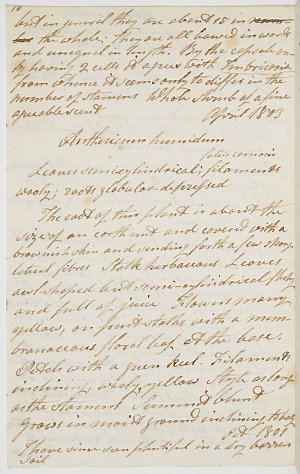 10
but in general they are about 15 in
the whole; They are all bowed inwards
and unequal in length. By the capsule on-
ly having 2 cells it agrees with Imbricaria
from whence it seems only to differ in the
number of stamens Whole shrub of a fine
agreeable scent
April 1803
Anthericum humidum
foliis
Leaves semicylindrical; filaments
wooly; roots globular depressed
The root of this plant is about the
size of an earthnut and coverd with a
brownish skin and sending forth a few strong
fibres Stalk herbaceous Leaves
awl shaped and semicylindrical fleshy
and full of juice Flowers many
yellow, on fruit stalks with a mem
branaceous floral leaf at the base.
Petals with a green keel. Filaments
inclining, wooly, yellow Style as long
as the stamens Summit blunt
grows in moist ground inclining to
Oct. 1801
I have since seen plentiful in a dry barren
soil